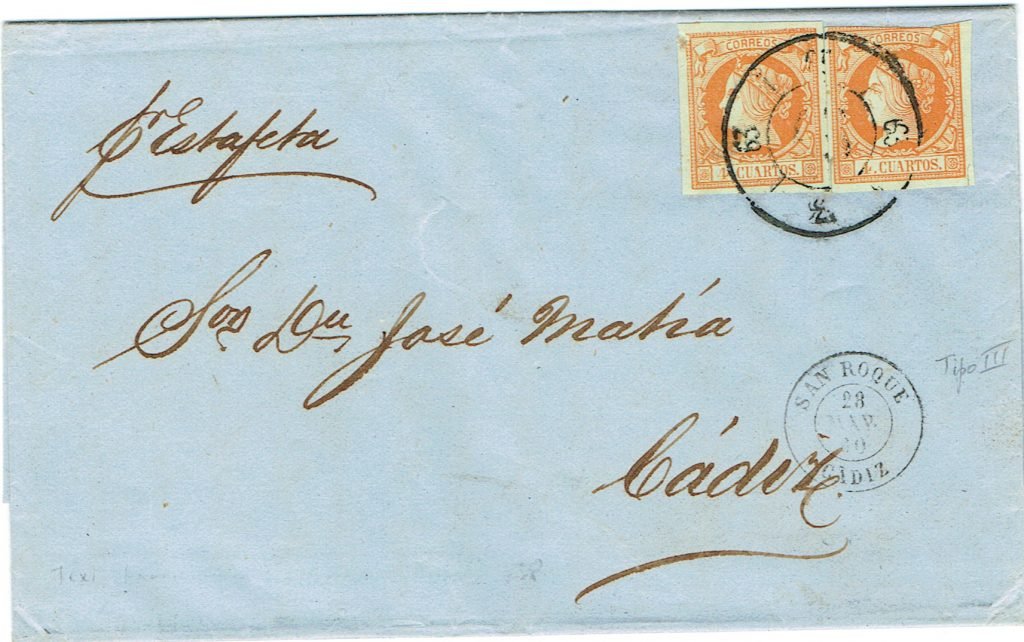 CORREOS CORREOS
4. CUARTOS. 4. CUARTOS.
63 63
pr Estafeta
Sor Dn José Matía
Cádiz
Tipo III
SAN ROQUE
28
MAR
60
CADIZ